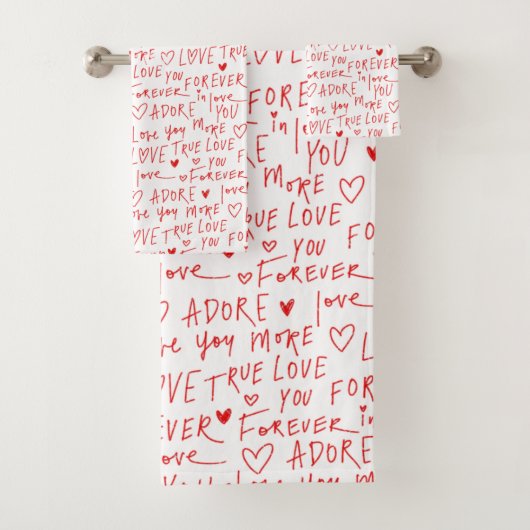 ORE LOVE TRUE
LOVE YOU FOREVER
FOREVER in love
ADORE YOU
love you MORE
LOVE TRUE LOVE
YOU
love FOREVER
ADORE love
you MORE
LOVE TRUE LOVE
YOU FOR
FOR
in l
YOU
MORE
TRUE LOVE
YOU FO
ove FOREVER
ADORE love
ve you MORE L
OVE TRUE LOVE
YOU FOR
EVER FOREVER in
ove ADORE
MORE
LOVE TRUE
YOU FOREVER
FOREVER love
ADORE YOU
ove you MORE
LOVE TRUE LOVE
YOU FOREVER